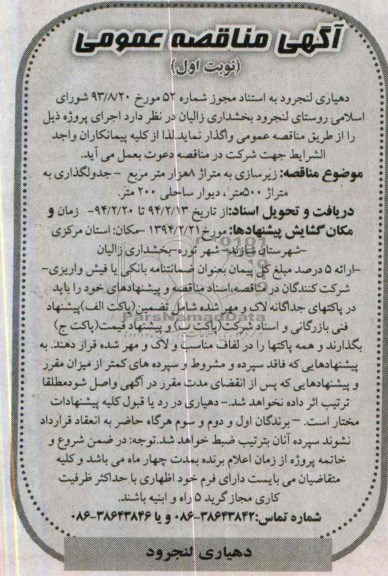 آگهی مناقصه عمومی
(نوبت اول)
دهیاری لنجرود به استناد مجوز شماره ۵۲ مورخ ۹۳/۸/۲۰ شورای
اسلامی روستای لنجرود بخشداری زالیان در نظر دارد اجرای پروژه ذیل
را از طریق مناقصه عمومی واگذار نماید.لذا از کلیه پیمانکاران واجد
الشرایط جهت شرکت در مناقصه دعوت بعمل می آید.
موضوع مناقصه: زیرسازی به متراژ ۸هزار متر مربع - جدولگذاری به
متراژ ۵۰۰متر، دیوار ساحلی ۲۰۰ متر.
دریافت و تحویل اسناد:از تاریخ ۹۴/۲/۱۳ تا ۹۴/۲/۲۰- زمان و
مکان گشایش پیشنهادها: مورخ ۱۳۹۴/۲/۲۱ -مکان: استان مرکزی
-شهرستان شازند- شهر توره-بخشداری زالیان
-ارائه ۵ درصد مبلغ کل پیمان بعنوان ضمانتنامه بانکی یا فیش واریزی-
شرکت کنندگان در مناقصه،اسناد مناقصه و پیشنهادهای خود را باید
در پاکتهای جداگانه لاک و مهر شده شامل تضمین(پاکت الف)پیشنهاد
فنی بازرگانی و اسناد شرکت(پاکت ب) و پیشنهاد قیمت(پاکت ج)
بگذارند و همه پاکتها را در لفاف مناسب و لاک و مهر شده قرار دهند. به
پیشنهادهایی که فاقد سپرده و مشروط و سپرده های کمتر از میزان مقرر
و پیشنهادهایی که پس از انقضای مدت مقرر در آگهی واصل شودمطلقا
ترتیب اثر داده نخواهد شد.- دهیاری در رد یا قبول کلیه پیشنهادات
مختار است. - برندگان اول و دوم و سوم هرگاه حاضر به انعقاد قرارداد
نشوند سپرده آنان بترتیب ضبط خواهد شد.توجه: در ضمن شروع و
خاتمه پروژه از زمان اعلام برنده بمدت چهار ماه می باشد و کلیه
متقاضیان می بایست دارای فرم خود اظهاری با حداکثر ظرفیت
کاری مجاز گرید ۵ راه و ابنیه باشند.
شماره تماس:۳۸۶۴۳۸۴۲-۰۸۶ و یا ۳۸۶۴۳۸۴۶-۰۸۶
دهیاری لنجرود
ParsNamadData